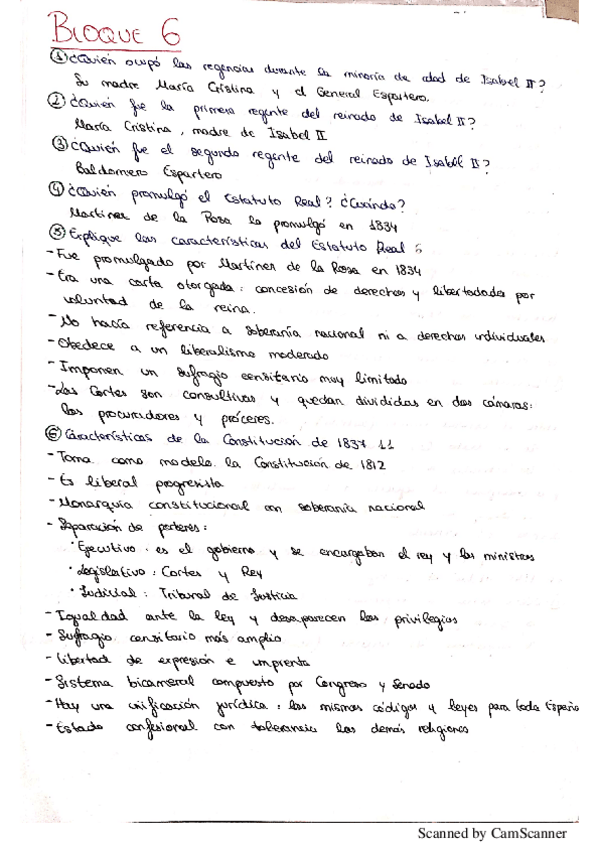 BLOQUE 6
① ¿Quién ocupó las regencias durante la minoría de edad de Isabel II?
Su madre María Cristina y el General Espartero.
② ¿Quién fue la primera regente del reinado de Isabel II?
María Cristina, madre de Isabel II
③ ¿Quién fue el segundo regente del reinado de Isabel II?
Baldomero Espartero
④ ¿Quién promulgó el Estatuto Real? ¿Cuándo?
Martínez de la Rosa lo promulgó en 1834
⑤ Explique las características del Estatuto Real 6
- Fue promulgado por Martínez de la Rosa en 1834
- Era una carta otorgada: concesión de derechos y libertades por
voluntad de la reina.
- No hacía referencia a soberanía nacional ni a derechos individuales
- Obedece a un liberalismo moderado
- Imponen un sufragio censitario muy limitado
- Las Cortes son consultivas y quedan divididas en dos cámaras:
los procuradores y próceres.
⑥ Características de la Constitución de 1837 11
- Toma como modelo la Constitución de 1812
- Es liberal progresista
- Monarquía constitucional con soberanía nacional
- Separación de poderes:
· Ejecutivo: es el gobierno y se encargaban el rey y los ministros
· Legislativo: Cortes y Rey
· Judicial: Tribunal de Justicia
- Igualdad ante la ley y desaparecen los privilegios
- Sufragio censitario más amplio
- Libertad de expresión e imprenta
- Sistema bicameral compuesto por Congreso y Senado
- Hay una unificación jurídica: los mismos códigos y leyes para toda España
- Estado confesional con tolerancia las demás religiones
Scanned by CamScanner